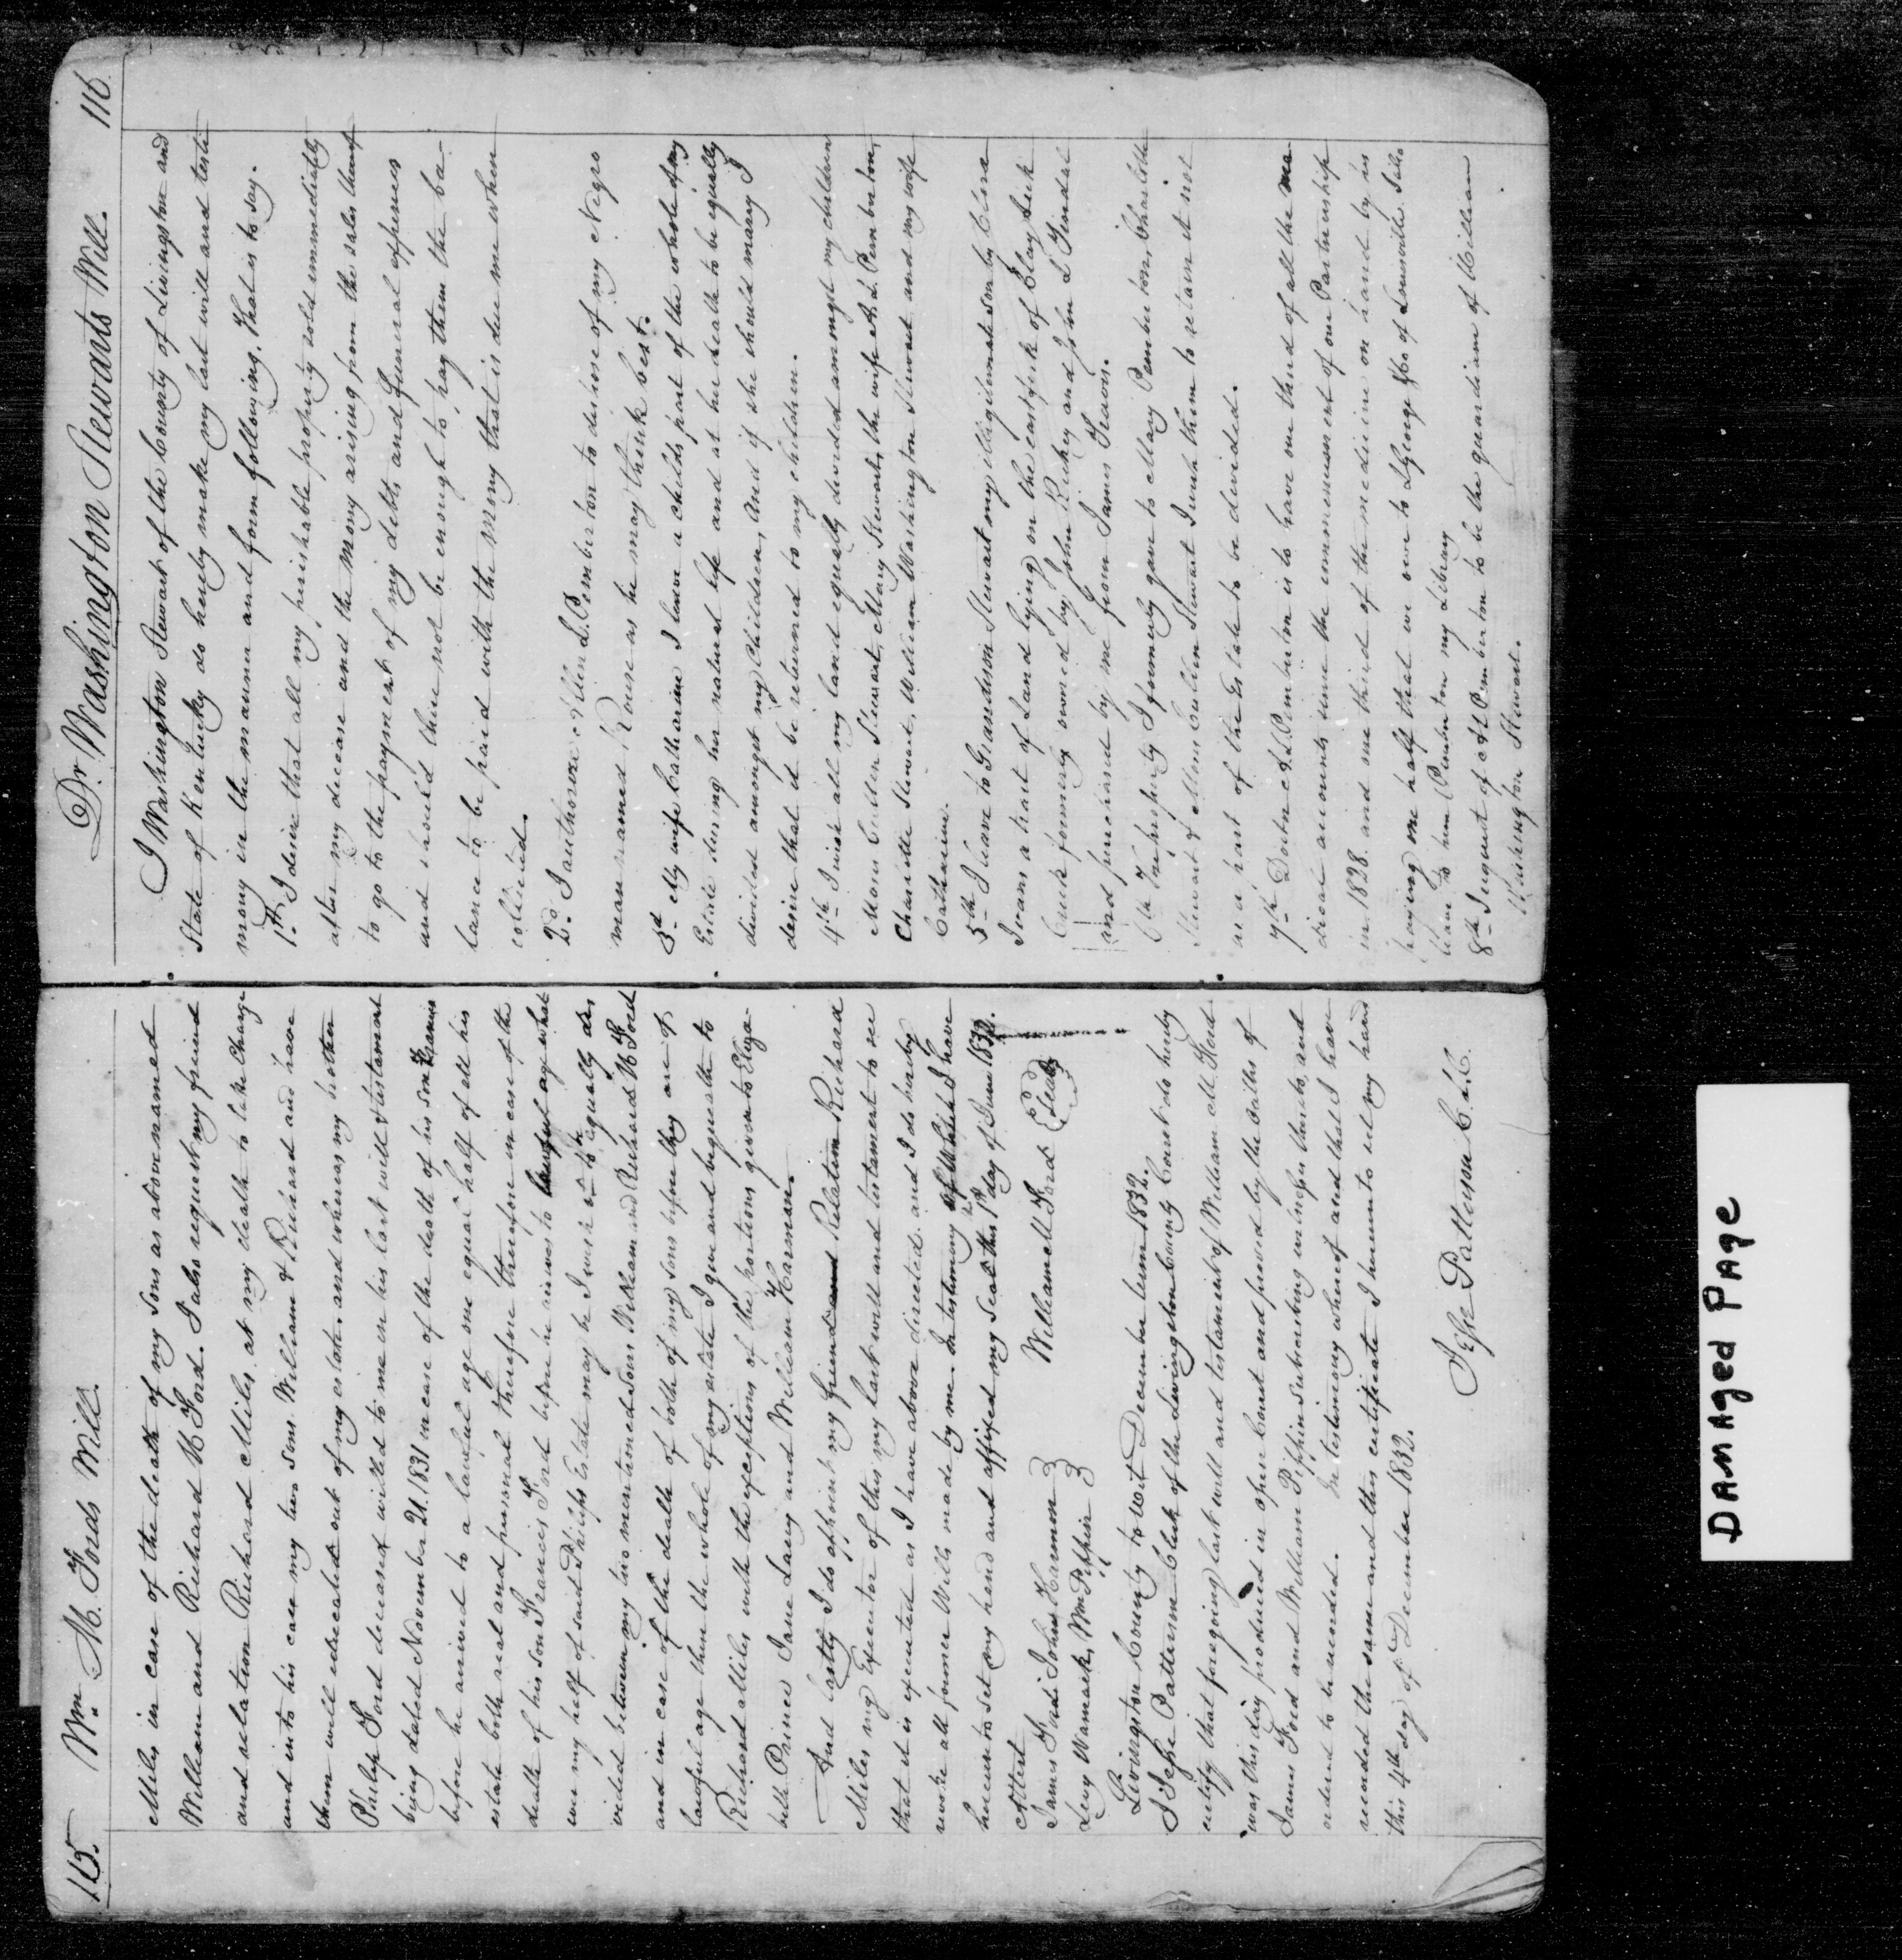 115. Wm. M. Fords Will.
Miles in case of the death of my sons as above named
William and Richard M Ford. I also request my friend
and relation Richard Miles, at my death to take charge
and into his care my two sons William & Richard and have
them well educated out of my estate. and whereas my brother
Philip Ford deceased willed to me in his last will & testament
being dated November 21. 1831 in case of the death of his son Francis
before he arrived to a lawful age one equal half of all his
estate both real and personal therefore therefore in case of the
death of his son Francis Ford before he arives to lawful age what
ever my half of said Philips Estate may be I wish it to be equally di-
vided between my two mentioned sons William and Richard M Ford
and in case of the death of both of my sons before they are of
lawful age then the whole of my estate I give and bequeath to
Richard Miles with the exceptions of the portions given to Eliza-
beth Prince Jane Lacy and William Harmon.
And lastly I do appoint my friend and Relation Richard
Miles my Executor of this my last will and testament to see
that it is executed as I have above directed. and I do hereby
revoke all former Wills made by me. In testimony of which I have
hereunto set my hand and affixed my seal this 1st day of June 1832.
Attest
James Ford John Harmon
Levy Wamack, Wm Pippin
William M Ford Seal
Livingston County to wit December term 1832.
I Jesse Patterson Clerk of the Livingston County Court do hereby
certify that foregoing last will and testament of William M Ford
was this day produced in open court and proved by the oathes of
James Ford and William Pippin subscribing witnesses thereto, and
ordered to be recorded. In testimony whereof and that I have
recorded the same and this certificate I hereunto set my hand
this 4th day of December 1832.
Jesse Patterson C.L.C.
Dr. Washington Stewarts Will. 116
I Washington Stewart of the County of Livingston and
State of Kentucky do hereby make my last will and testa
mony in the manner and form following, that is to say.
1st. I desire that all my perishable property sold immediately
after my decease and the money arising from the sales thereof
to go to the payment of my debts and funeral expenses
and should there not be enough to pay them the ba-
lance to be paid with the money that is due me when
collected.
2d. I authorise Allen L. Pemberton to dispose of my Negro
man named Rouse as he may think best.
3d My wife Catharine I leave a childs part of the whole of my
Estate during her natural life and at her death to be equally
divided amongst my Children, And if she should marry I
desire that it be returned to my children.
4th I wish all my land equally divided amongst my children
Moses Cullen Stewart, Mary Stewart, the wife A. L. Pemberton,
Charlotte Stewart, William Washington Stewart and my wife
Catharine.
5th I leave to Grandison Stewart my illigitimate son by Clora
Ivans a tract of Land lying on the east fork of Clay lick
Creek formerly owned by John Richey and John L Tindal
and purchased by me from James Travis.
6th The property I formerly gave to Mary Pemberton, Charlotte
Stewart & Moses Cullen Stewart I wish them to retain it not
as a part of the Estate to be devided.
7th Doctor A. L. Pemberton is to have one third of all the me
dical accounts since the commencement of our Partnership
in 1828. and one third of the medicine on hand by his
paying one half that we owe to George &Co of Louisville. I also
leave to him Pemberton my Library
8th I request of A L Pemberton to be the guardian of William
Washington Stewart.
DAMAged PAge